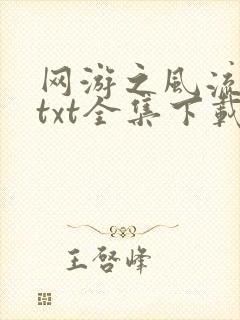 网游之风流
txt全集下载
王啓峰